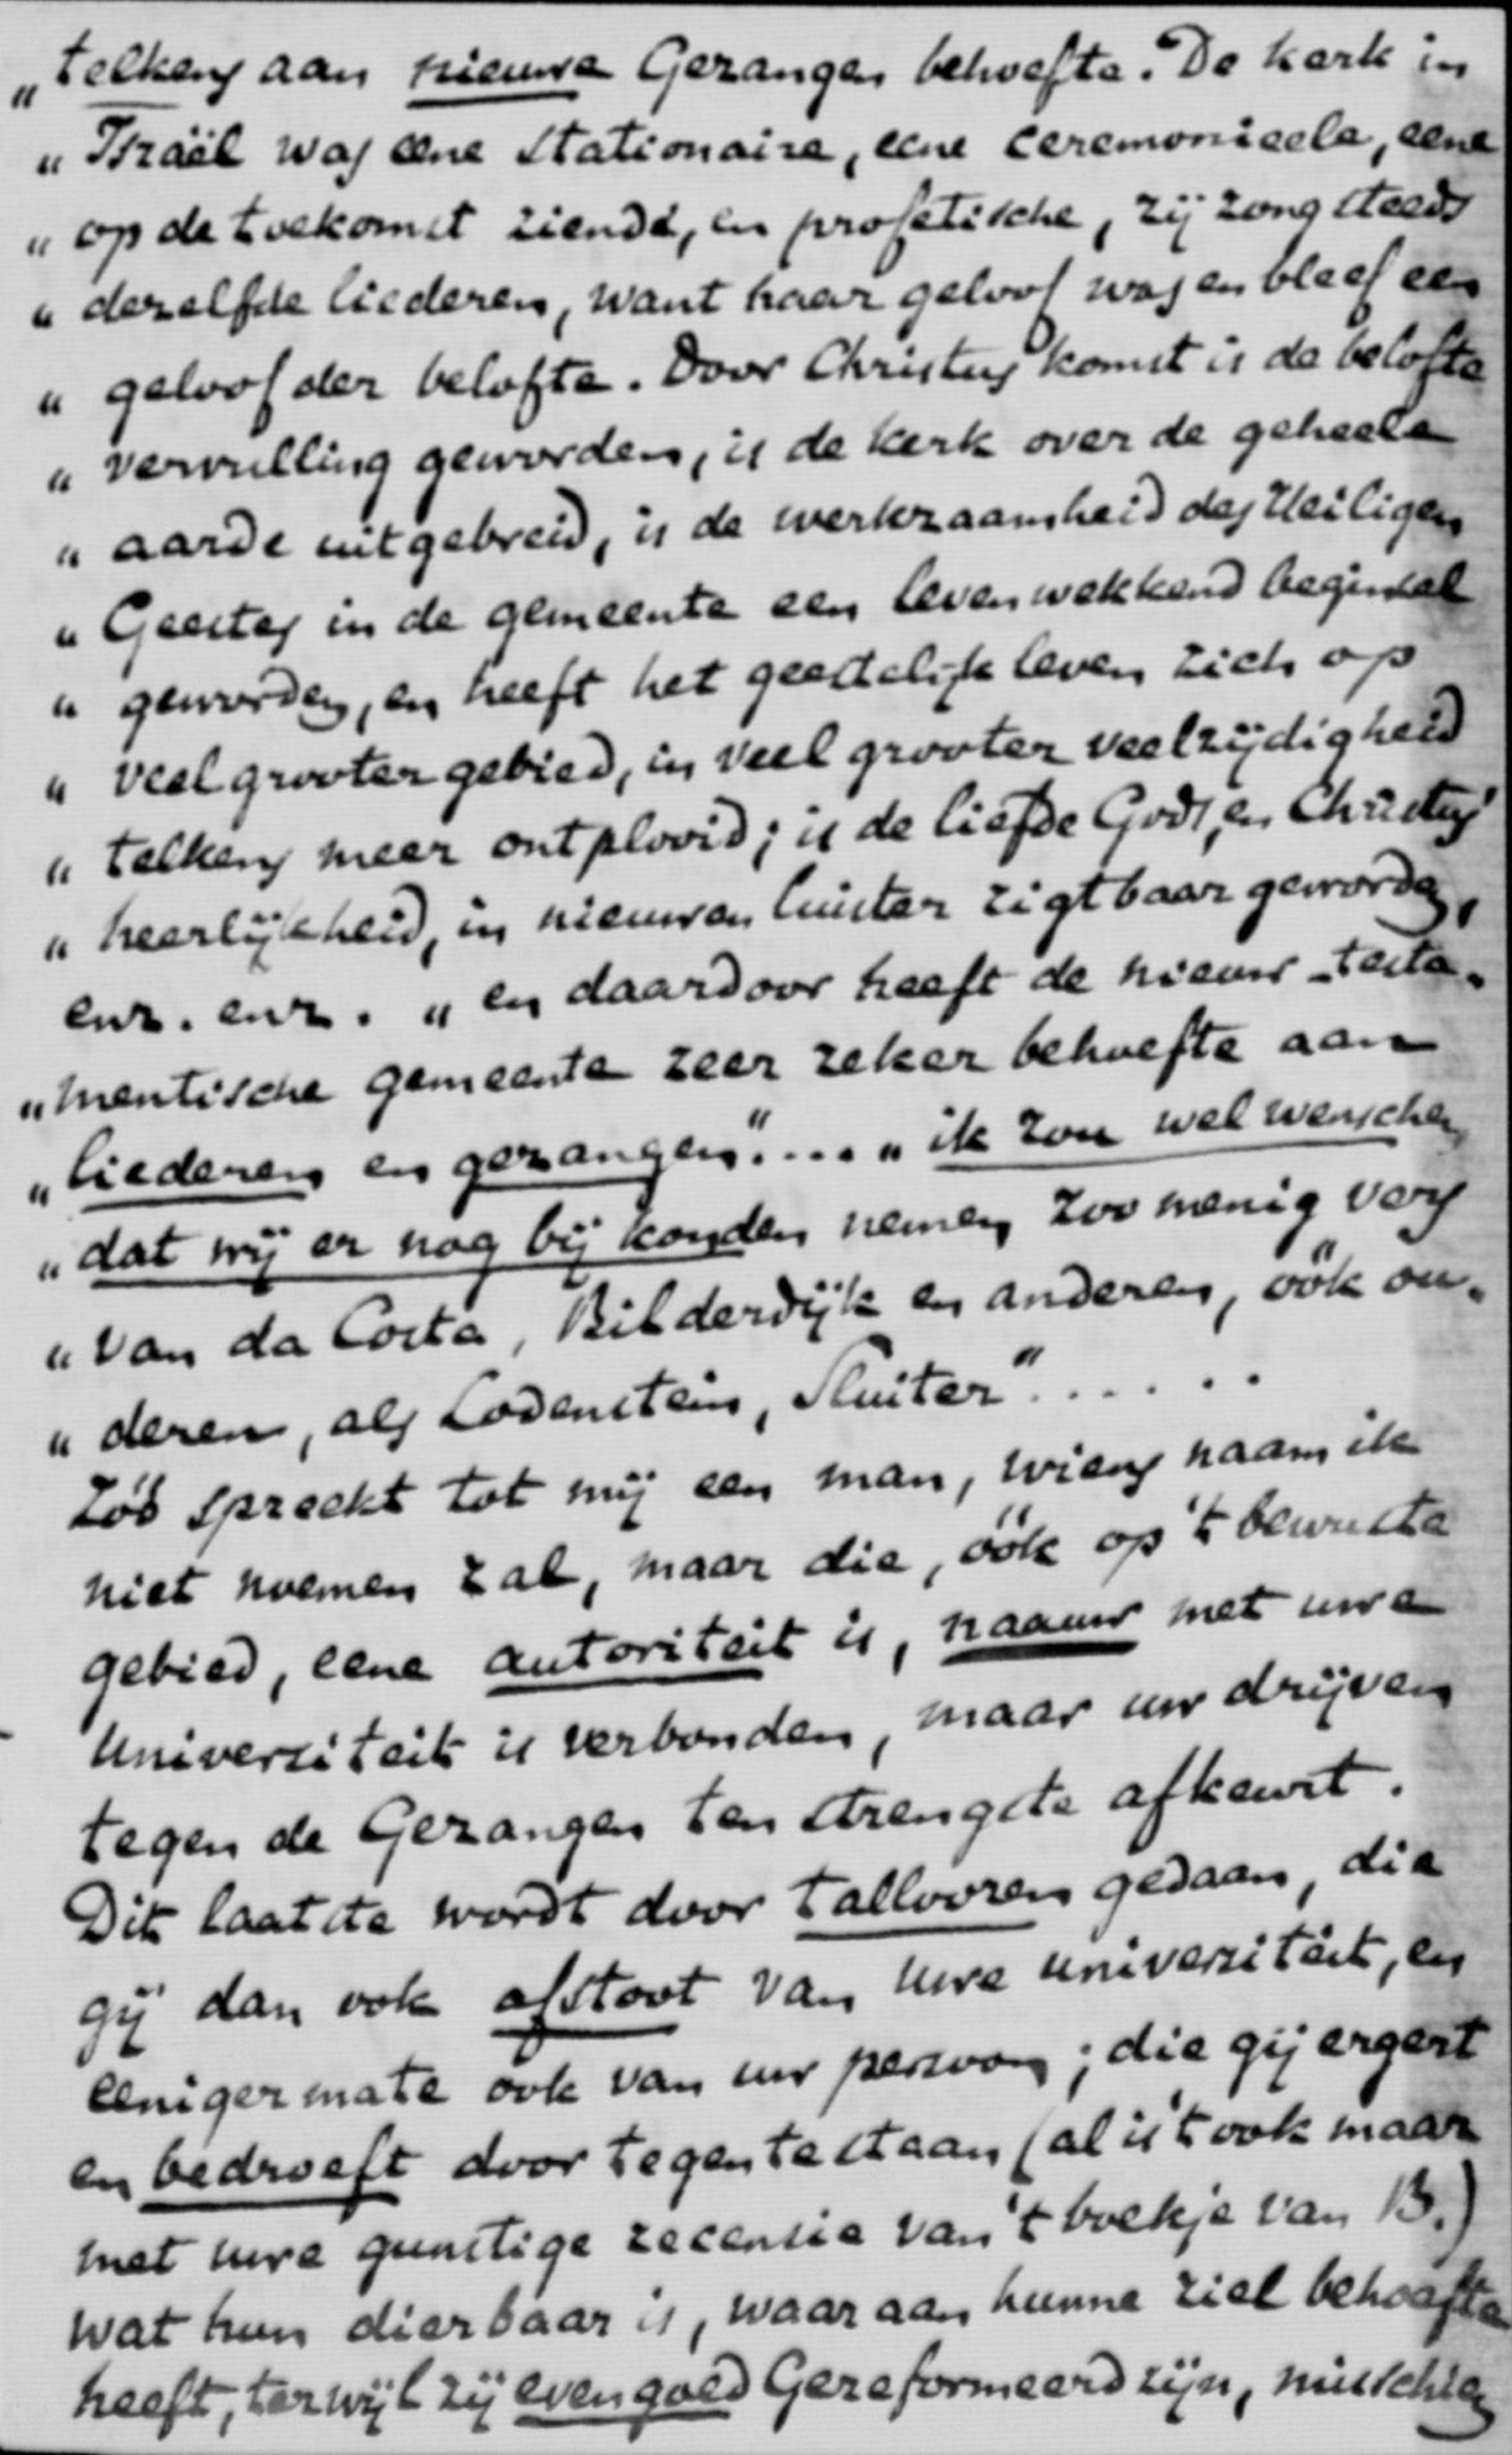 „telkens aan nieuwe Gezangen behoefte. De kerk in
„Israël was eene stationaire, eene ceremonieele, eene
„op de toekomst ziende, en profetische, zij zong steeds
„dezelfde liederen, want haar geloof was en bleef een
„geloof der belofte. Door Christus' komst is de belofte
„vervulling geworden, is de kerk over de geheele
„aarde uitgebreid, is de werkzaamheid des Heiligen
„Geestes in de gemeente een levenwekkend beginsel
„geworden, en heeft het geestelijk leven zich op
„veel grooter gebied, in veel grooter veelzijdigheid
„telkens meer ontplooid; is de liefde Gods, en Christus'
„heerlijkheid, in nieuwen luister zigtbaar geworden,
enz. enz. „en daardoor heeft de nieuw-testa-
„mentische gemeente zeer zeker behoefte aan
„liederen en gezangen." ... „ik zou wel wenschen,
„dat wij er nog bij konden nemen zoo menig vers
„van da Costa, Bilderdijk en anderen, óók ou-
„deren, als Lodenstein, Sluiter" ......
Zóó spreekt tot mij een man, wiens naam ik
niet noemen zal, maar die, óók op 't bewuste
gebied, eene autoriteit is, naauw met uwe
Universiteit is verbonden, maar uw drijven
tegen de Gezangen ten strengste afkeurt.
Dit laatste wordt door talloozen gedaan, die
gij dan ook afstoot van uwe universiteit, en
eenigermate ook van uw persoon; die gij ergert
en bedroeft door tegen te staan (al is 't ook maar
met uwe gunstige recensie van 't boekje van B.)
wat hun dierbaar is, waaraan hunne ziel behoefte
heeft, terwijl zij evengoed Gereformeerd zijn, misschien